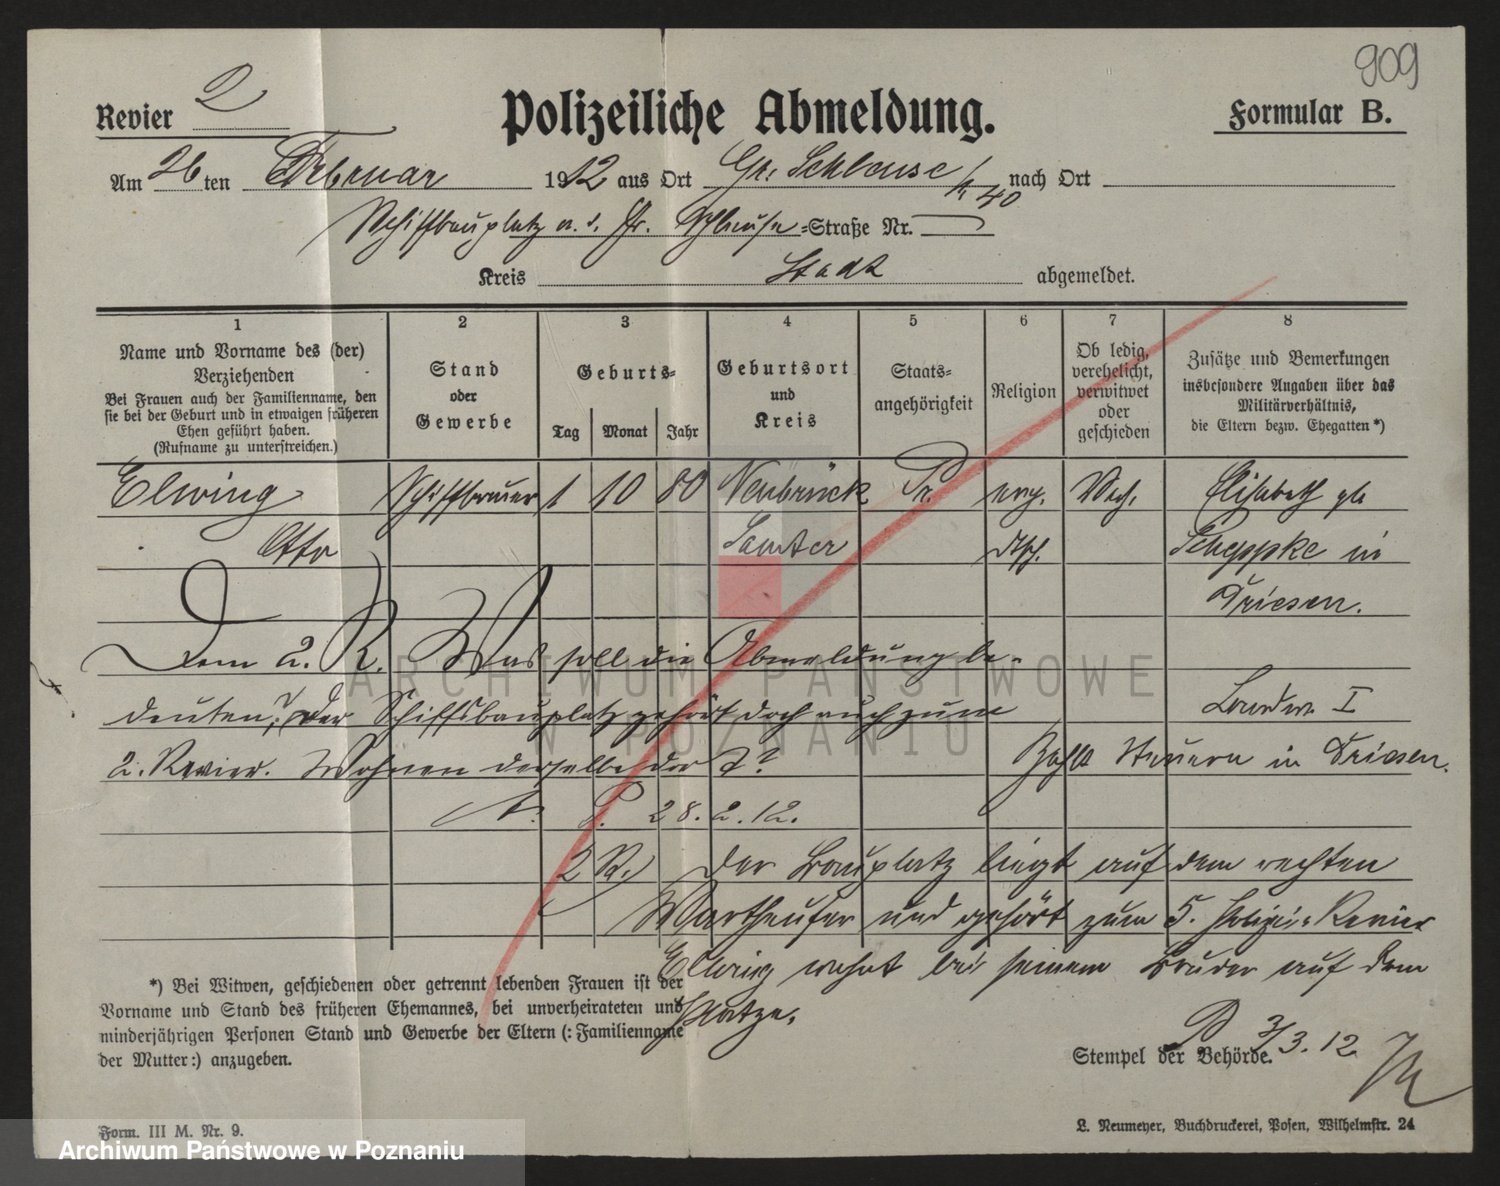 909
Revier 2
Polizeiliche Abmeldung.
Formular B.
Am 26 ten Februar 1912 aus Ort Gr. Schleuse nach Ort
40
Schiffbauplatz a. d. Gr. Schleuse=Straße Nr.
Kreis Stadt abgemeldet.
1 2 3 4 5 6 7 8
Name und Vorname des (der)
Verziehenden
Bei Frauen auch der Familienname, den
sie bei der Geburt und in etwaigen früheren
Ehen geführt haben.
(Rufname zu unterstreichen.)
Stand
oder
Gewerbe
Geburts=
Tag Monat Jahr
Geburtsort
und
Kreis
Staats=
angehörigkeit
Religion
Ob ledig,
verehelicht,
verwitwet
oder
geschieden
Zusätze und Bemerkungen
insbesondere Angaben über das
Militärverhältnis,
die Eltern bezw. Ehegatten*)
Elwing Schiffbauer 1 10 80 Neubrück Pr. evg. Elisabeth gb
Otto Samter Scheppke in
Driesen.
Dem 2. R. Was soll die Abmeldung be-
deuten? Der Schiffsbauplatz gehört doch auch zum
Landw. I
2. Revier. Wohnen derselbe dort?
Zahlt Steuern in Driesen.
P. 28.2.12.
2 R. Der Bauplatz liegt auf dem rechten
Wartheufer und gehört zum 5. Polizei-Revier
Elwing wohnt bei seinem Bruder auf dem
Platze.
P 3/3.12.
*) Bei Witwen, geschiedenen oder getrennt lebenden Frauen ist der
Vorname und Stand des früheren Ehemannes, bei unverheirateten und
minderjährigen Personen Stand und Gewerbe der Eltern (: Familienname
der Mutter:) anzugeben.
Stempel der Behörde.
Form. III M. Nr. 9.
L. Neumeyer, Buchdruckerei, Posen, Wilhelmstr. 24
ARCHIWUM PAŃSTWOWE
W POZNANIU
Archiwum Państwowe w Poznaniu